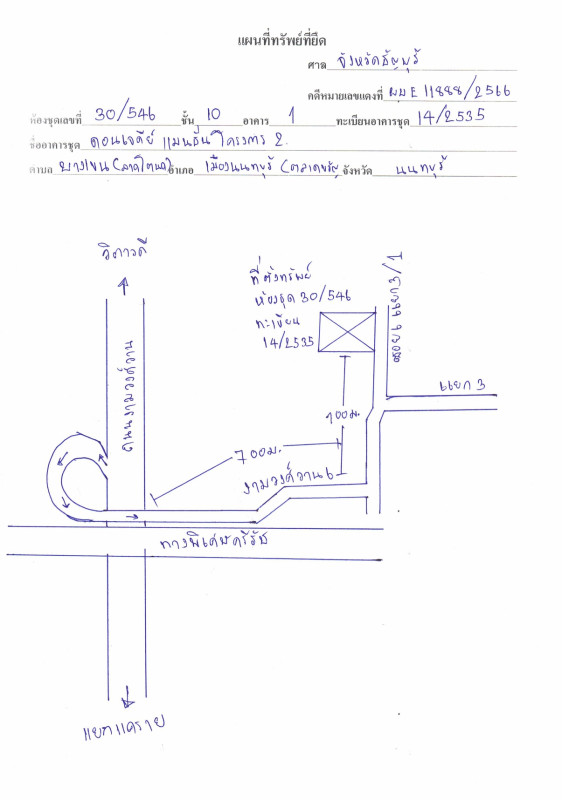 แผนที่ทรัพย์ที่ยึด
ศาล จังหวัดธัญบุรี
คดีหมายเลขแดงที่ ผบE11888/2566
ห้องชุดเลขที่ 30/546 ชั้น 10 อาคาร 1 ทะเบียนอาคารชุด 14/2535
ชื่ออาคารชุด ดอนเจดีย์ แมนชั่น โครงการ 2
ตำบล บางเขน (ลาดโตนด) อำเภอ เมืองนนทบุรี (ตลาดขวัญ) จังหวัด นนทบุรี
วิภาวดี
ที่ตั้งทรัพย์
ห้องชุด 30/546
ทะเบียน
14/2535
ซอย 9 แยก 3/1
ถนนงามวงศ์วาน
แยก 3
100ม.
700ม.
งามวงศ์วาน 6
ทางพิเศษศรีรัช
แยกแคราย